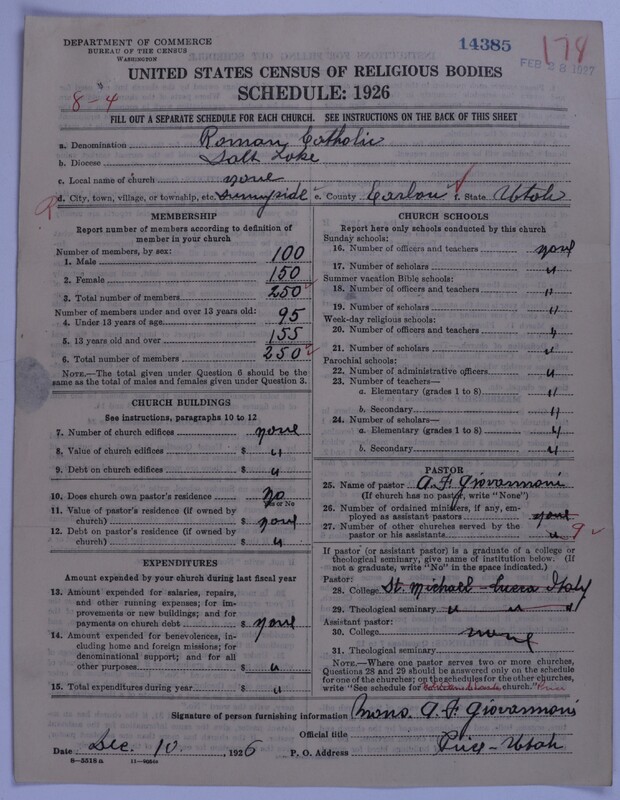 DEPARTMENT OF COMMERCE
BUREAU OF THE CENSUS
WASHINGTON
14385
178
FEB 28 1927
UNITED STATES CENSUS OF RELIGIOUS BODIES
SCHEDULE: 1926
8-4
FILL OUT A SEPARATE SCHEDULE FOR EACH CHURCH. SEE INSTRUCTIONS ON THE BACK OF THIS SHEET
a. Denomination Roman Catholic
b. Diocese Salt Lake
c. Local name of church none
d. City, town, village, or township, etc. Sunnyside e. County Carbon f. State Utah
MEMBERSHIP
Report number of members according to definition of member in your church
Number of members, by sex:
1. Male 100
2. Female 150
3. Total number of members 250
Number of members under and over 13 years old:
4. Under 13 years of age 95
5. 13 years old and over 155
6. Total number of members 250
NOTE.—The total given under Question 6 should be the same as the total of males and females given under Question 3.
CHURCH BUILDINGS
See instructions, paragraphs 10 to 12
7. Number of church edifices none
8. Value of church edifices $ "
9. Debt on church edifices $ "
10. Does church own pastor's residence no
Yes or No
11. Value of pastor's residence (if owned by church) $ none
12. Debt on pastor's residence (if owned by church) $ "
EXPENDITURES
Amount expended by your church during last fiscal year
13. Amount expended for salaries, repairs, and other running expenses; for improvements or new buildings; and for payments on church debt $ none
14. Amount expended for benevolences, including home and foreign missions; for denominational support; and for all other purposes $ "
15. Total expenditures during year $ "
CHURCH SCHOOLS
Report here only schools conducted by this church
Sunday schools:
16. Number of officers and teachers none
17. Number of scholars "
Summer vacation Bible schools:
18. Number of officers and teachers "
19. Number of scholars "
Week-day religious schools:
20. Number of officers and teachers "
21. Number of scholars "
Parochial schools:
22. Number of administrative officers "
23. Number of teachers—
a. Elementary (grades 1 to 8) "
b. Secondary "
24. Number of scholars—
a. Elementary (grades 1 to 8) "
b. Secondary "
PASTOR
25. Name of pastor A. F. Giovannoni
(If church has no pastor, write "None")
26. Number of ordained ministers, if any, employed as assistant pastors none
27. Number of other churches served by the pastor or his assistants " 9
If pastor (or assistant pastor) is a graduate of a college or theological seminary, give name of institution below. (If not a graduate, write "No" in the space indicated.)
Pastor:
28. College St. Michael - Lucca Italy
29. Theological seminary " " "
Assistant pastor:
30. College none
31. Theological seminary
NOTE.—Where one pastor serves two or more churches, Questions 28 and 29 should be answered only on the schedule for one of the churches; on the schedules for the other churches, write "See schedule for church." Price
Signature of person furnishing information Mons. A. F. Giovannoni
Official title
Date Dec. 10, 1926 P. O. Address Price - Utah
8—5518 a